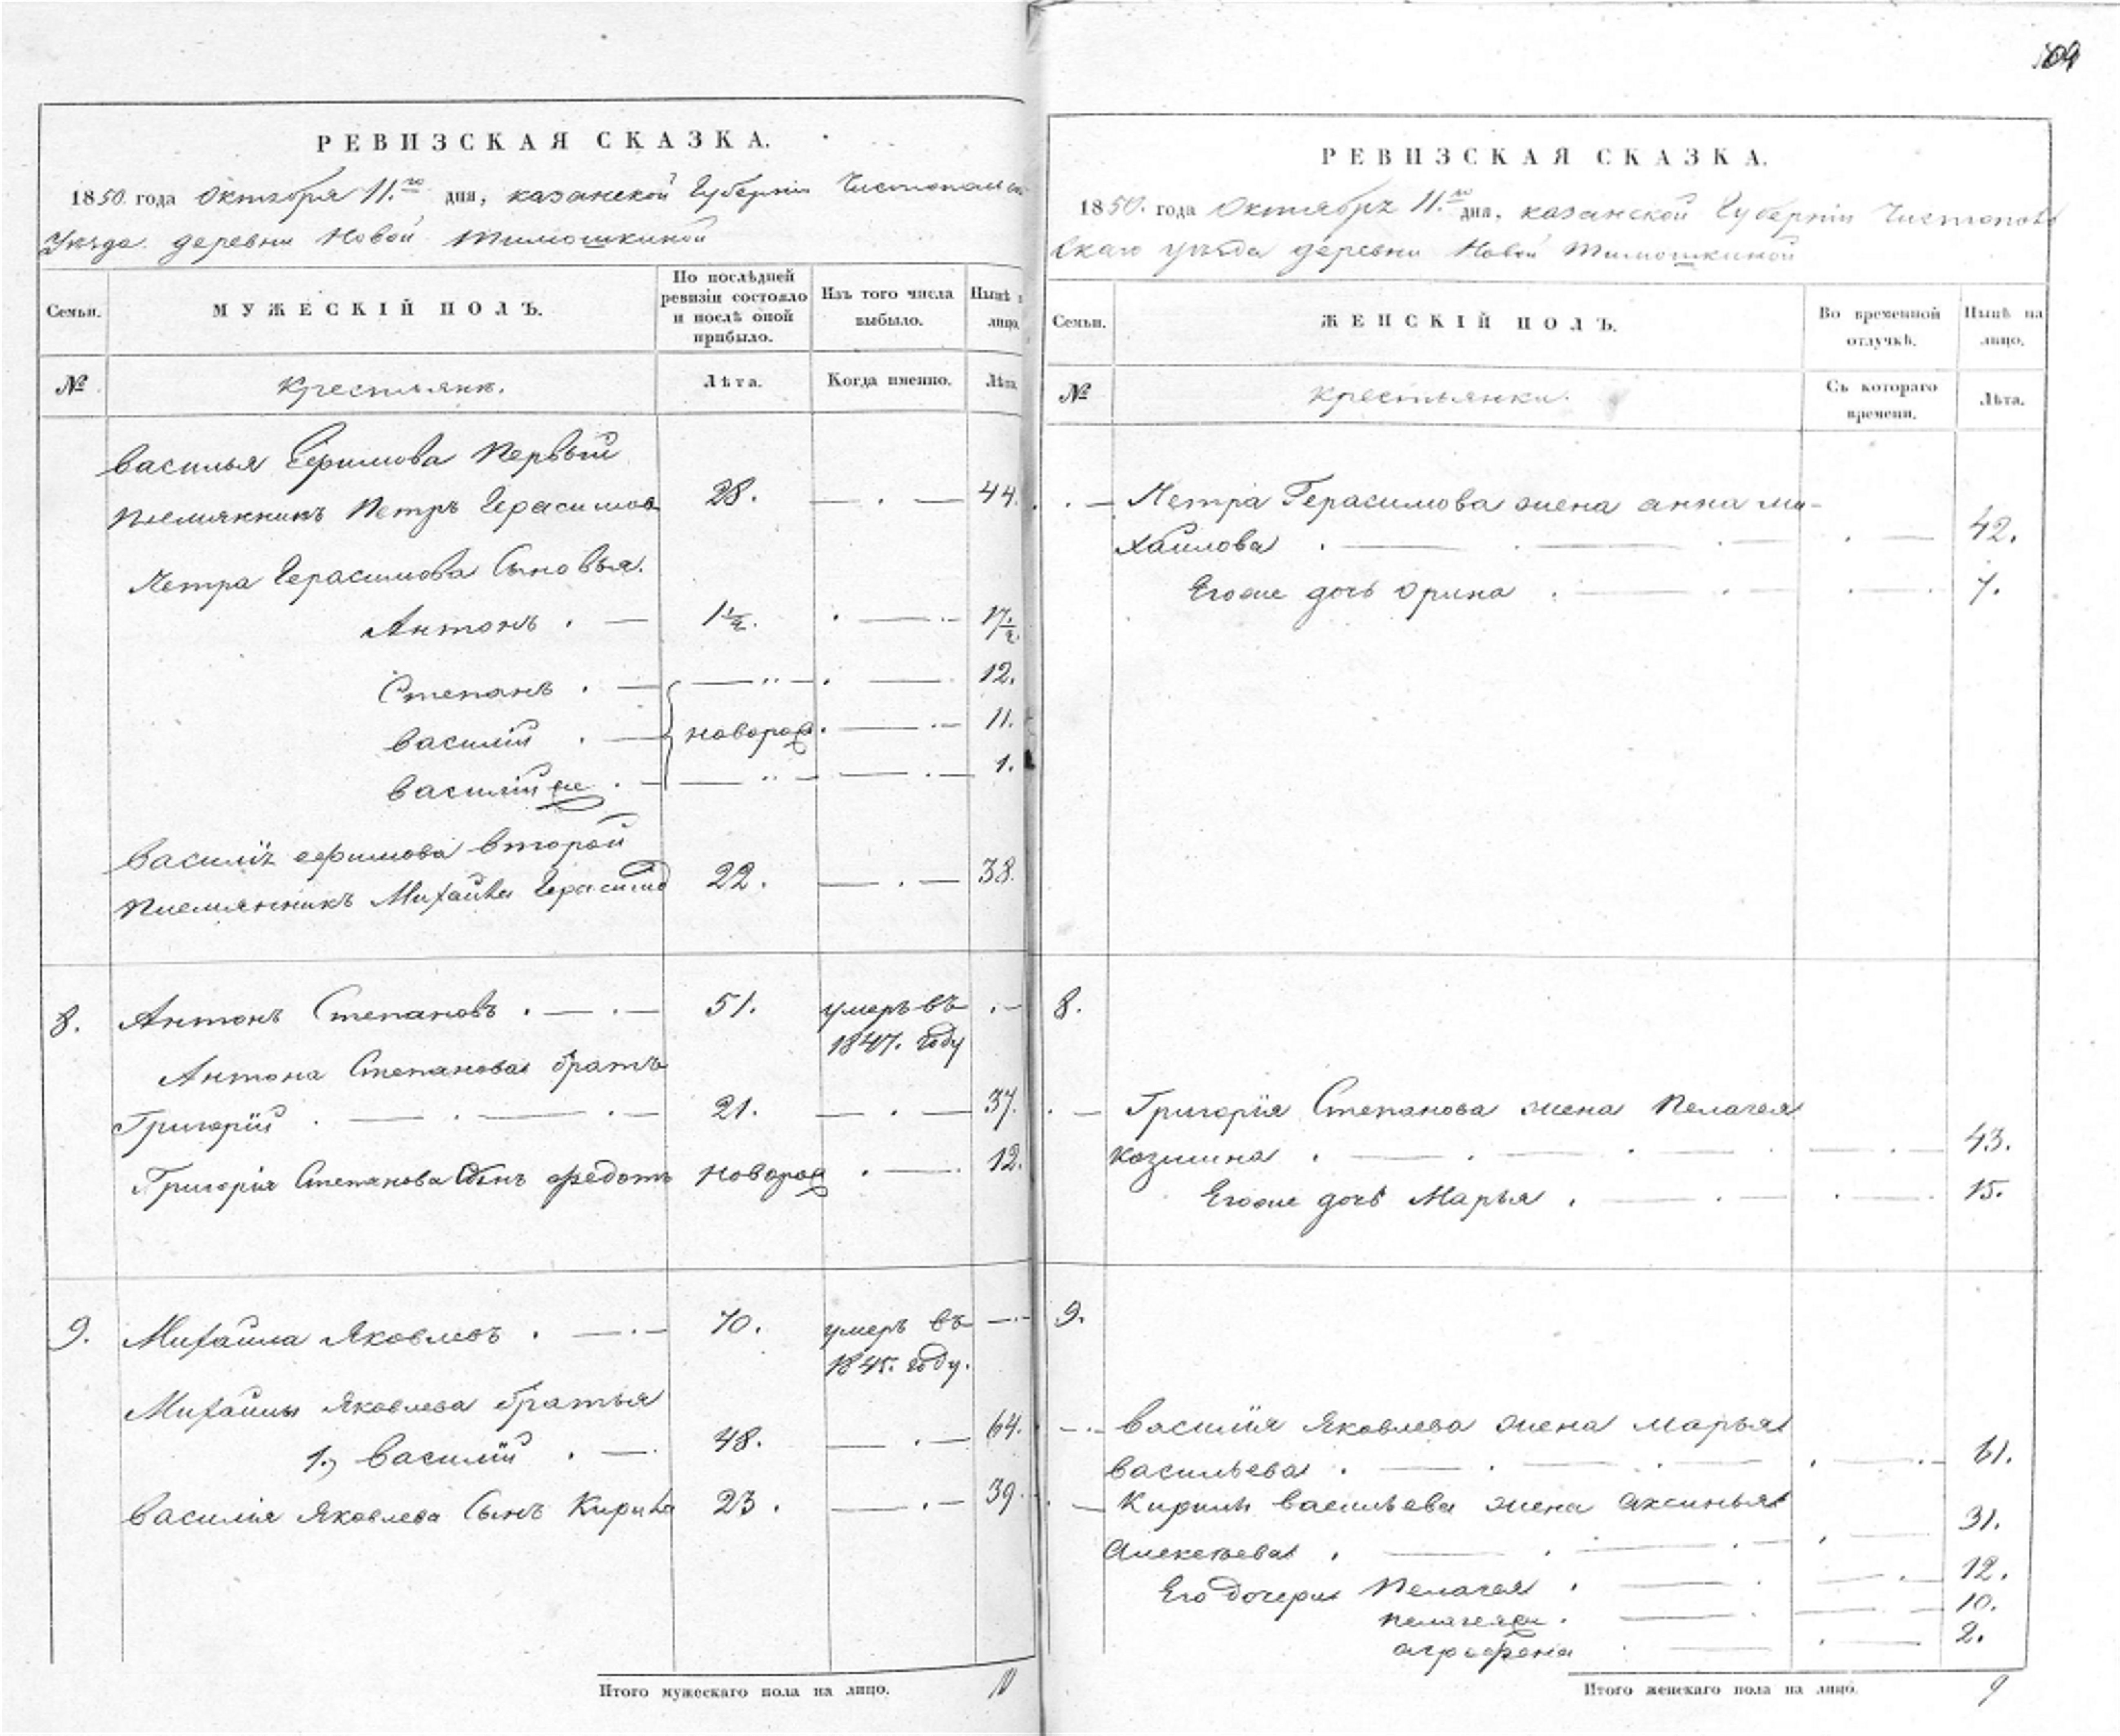 РЕВИЗСКАЯ СКАЗКА.
1850 года Октября 11.го дня, казанской Губернии Чистопольск
Уезда деревни Новой Тимошкиной
Семьи. МУЖЕСКІЙ ПОЛЪ. По послѣдней ревизіи состояло и послѣ оной прибыло. Изъ того числа выбыло. Нынѣ лицо.
№ Крестьянъ. Лѣта. Когда именно. Лѣта.
Василья Ефимова Первый
племянникъ Петръ Герасимов 28. 44.
Петра Герасимова Сыновья.
Антонъ 1 1/2. 17 1/2.
Степанъ 12.
Василій новорож. 11.
Василій же 1.
Василія ефимова второй
племянникъ Михайла Герасимов 22. 38.
8. Антонъ Степановъ. 51. умеръ въ
1847. году
Антона Степанова братъ
Григорій 21. 37.
Григорія Степанова Сынъ Федотъ новорож 12.
9. Михайла Яковлевъ. 70. умеръ въ
1845. году.
Михайлы Яковлева братья
1., Василій 48. 64.
Василія Яковлева Сынъ Кирила 23. 39.
Итого мужескаго пола на лицо. 10
РЕВИЗСКАЯ СКАЗКА.
1850. года Октября 11.го дня, казанской Губерніи Чистополь
скаго уѣзда деревни Новой Тимошкиной
Семьи. ЖЕНСКІЙ ПОЛЪ. Во временной отлучкѣ. Нынѣ на лицо.
№ Крестьянки. Съ котораго времени. Лѣта.
Петра Герасимова жена анна ми-
хайлова 42.
Егоже дочь орина 7.
8.
Григорія Степанова жена Пелагея
козмина 43.
Егоже дочь Марья 15.
9.
Василія Яковлева жена марья
васильева 61.
Кирилы васильева жена аксинья
алексѣева 31.
Его дочери Пелагея 12.
пелагея же 10.
аграфена 2.
Итого женскаго пола на лицо. 9